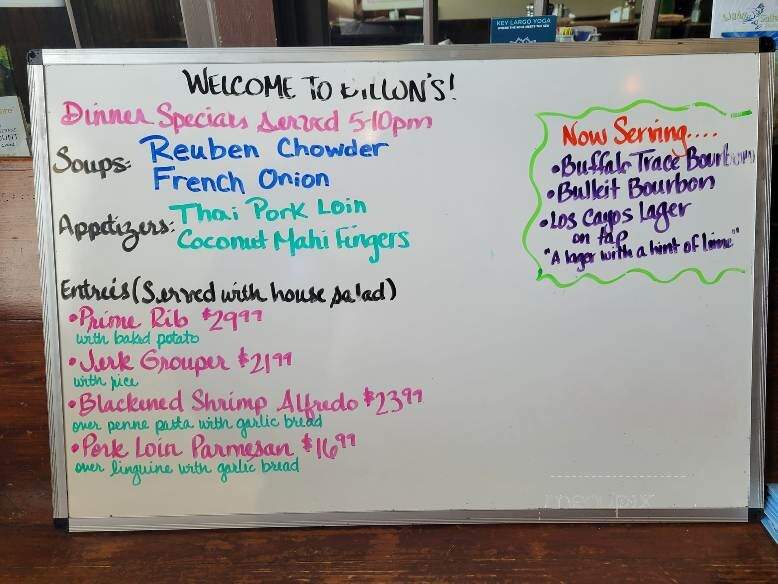 KEY LARGO YOGA
WELCOME TO DILLON'S!
Dinner Specials Served 5-10pm
Soups: Reuben Chowder
French Onion
Appetizers: Thai Pork Loin
Coconut Mahi Fingers
Entreés (Served with house salad)
•Prime Rib $29⁹⁹
with baked potato
•Jerk Grouper $21⁹⁹
with rice
•Blackened Shrimp Alfredo $23⁹⁹
over penne pasta with garlic bread
•Pork Loin Parmesan $16⁹⁹
over linguine with garlic bread
Now Serving....
•Buffalo Trace Bourbon
•Bulleit Bourbon
•Los Cayos Lager
on tap
"A lager with a hint of lime"